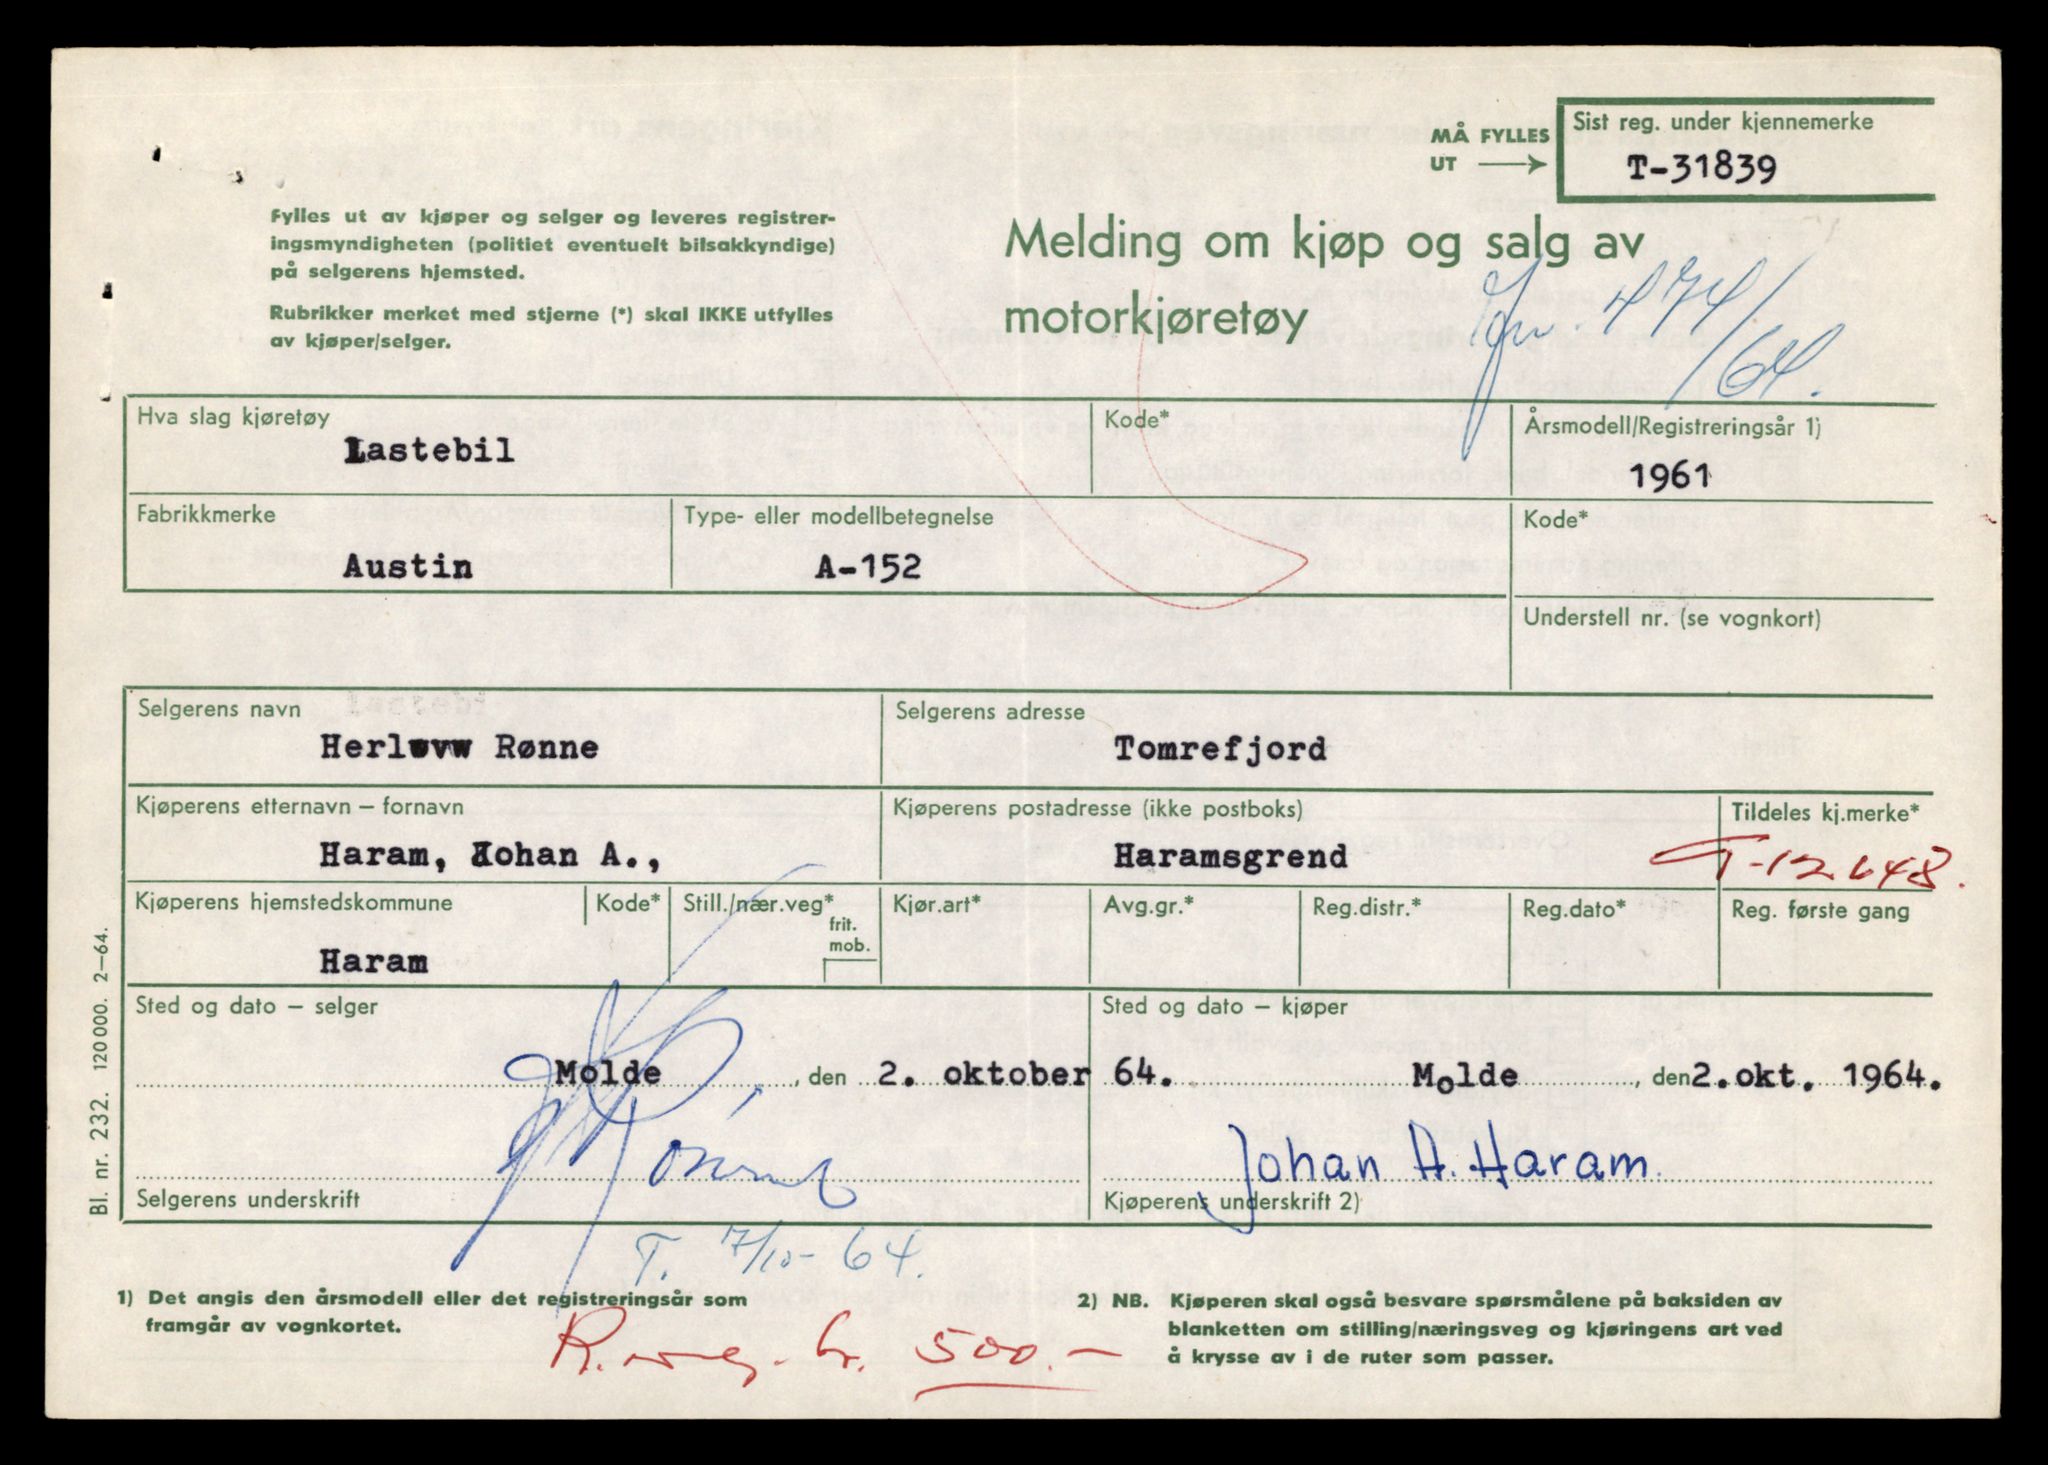 MÅ FYLLES
UT
Sist reg. under kjennemerke
T-31839
Fylles ut av kjøper og selger og leveres registrer-
ingsmyndigheten (politiet eventuelt bilsakkyndige)
på selgerens hjemsted.
Rubrikker merket med stjerne (*) skal IKKE utfylles
av kjøper/selger.
Melding om kjøp og salg av
motorkjøretøy
Jnr. 474/64.
Hva slag kjøretøy
Lastebil
Kode*
Årsmodell/Registreringsår 1)
1961
Fabrikkmerke
Austin
Type- eller modellbetegnelse
A-152
Kode*
Understell nr. (se vognkort)
Selgerens navn
Rønne
Selgerens adresse
Tomrefjord
Kjøperens etternavn – fornavn
Haram, Johan A.,
Kjøperens postadresse (ikke postboks)
Haramsgrend
Tildeles kj.merke*
T-12648.
Kjøperens hjemstedskommune
Haram
Kode*
Still./nær.veg*
frit.
mob.
Kjør.art*
Avg.gr.*
Reg.distr.*
Reg.dato*
Reg. første gang
Sted og dato – selger
Molde, den 2. oktober 64.
Selgerens underskrift
Sted og dato – kjøper
Molde, den 2. okt. 1964.
Johan A. Haram.
Kjøperens underskrift 2)
T. 7/10-64.
1) Det angis den årsmodell eller det registreringsår som
framgår av vognkortet.
kr. 500.-
2) NB. Kjøperen skal også besvare spørsmålene på baksiden av
blanketten om stilling/næringsveg og kjøringens art ved
å krysse av i de ruter som passer.
Bl. nr. 232. 120 000. 2–64.